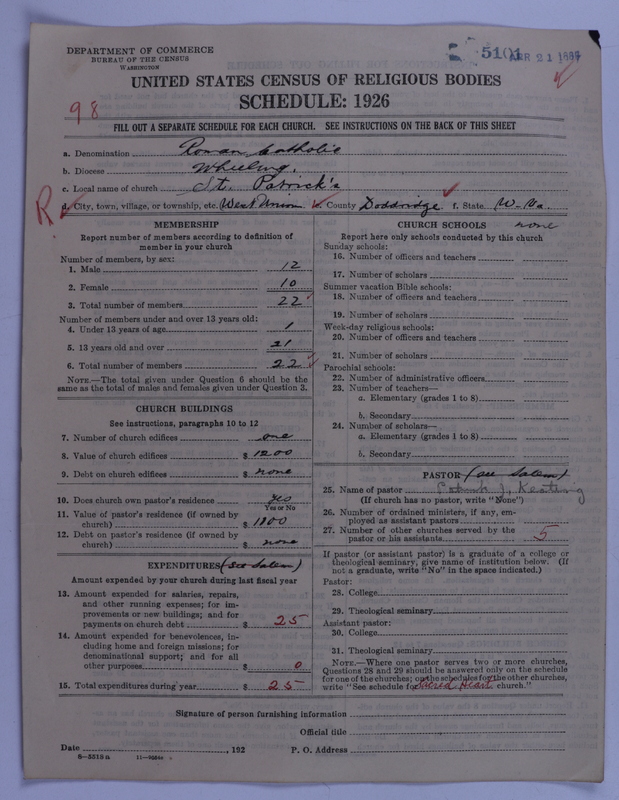 DEPARTMENT OF COMMERCE
BUREAU OF THE CENSUS
WASHINGTON
5101
APR 21
UNITED STATES CENSUS OF RELIGIOUS BODIES
SCHEDULE: 1926
98
FILL OUT A SEPARATE SCHEDULE FOR EACH CHURCH. SEE INSTRUCTIONS ON THE BACK OF THIS SHEET
a. Denomination Roman Catholic
b. Diocese Wheeling.
c. Local name of church St. Patrick's
R.
d. City, town, village, or township, etc. West Union County Doddridge f. State W. Va.
MEMBERSHIP
Report number of members according to definition of
member in your church
Number of members, by sex:
1. Male 12
2. Female 10
3. Total number of members 22
Number of members under and over 13 years old:
4. Under 13 years of age 1
5. 13 years old and over 21
6. Total number of members 22
NOTE.—The total given under Question 6 should be the
same as the total of males and females given under Question 3.
CHURCH BUILDINGS
See instructions, paragraphs 10 to 12
7. Number of church edifices one
8. Value of church edifices $ 1200
9. Debt on church edifices $ none
10. Does church own pastor's residence yes
Yes or No
11. Value of pastor's residence (if owned by
church) $ 1800
12. Debt on pastor's residence (if owned by
church) $ none
EXPENDITURES (see Salem)
Amount expended by your church during last fiscal year
13. Amount expended for salaries, repairs,
and other running expenses; for im-
provements or new buildings; and for
payments on church debt $ 25
14. Amount expended for benevolences, in-
cluding home and foreign missions; for
denominational support; and for all
other purposes $ 0
15. Total expenditures during year $ 25
CHURCH SCHOOLS none
Report here only schools conducted by this church
Sunday schools:
16. Number of officers and teachers
17. Number of scholars
Summer vacation Bible schools:
18. Number of officers and teachers
19. Number of scholars
Week-day religious schools:
20. Number of officers and teachers
21. Number of scholars
Parochial schools:
22. Number of administrative officers
23. Number of teachers—
a. Elementary (grades 1 to 8)
b. Secondary
24. Number of scholars—
a. Elementary (grades 1 to 8)
b. Secondary
PASTOR (see Salem)
25. Name of pastor Patrick J. Keating
(If church has no pastor, write "None")
26. Number of ordained ministers, if any, em-
ployed as assistant pastors
27. Number of other churches served by the
pastor or his assistants 5
If pastor (or assistant pastor) is a graduate of a college or
theological seminary, give name of institution below. (If
not a graduate, write "No" in the space indicated.)
Pastor:
28. College
29. Theological seminary
Assistant pastor:
30. College
31. Theological seminary
NOTE.—Where one pastor serves two or more churches,
Questions 28 and 29 should be answered only on the schedule
for one of the churches; on the schedules for the other churches,
write "See schedule for Sacred Heart church."
Signature of person furnishing information
Official title
Date , 192 P. O. Address